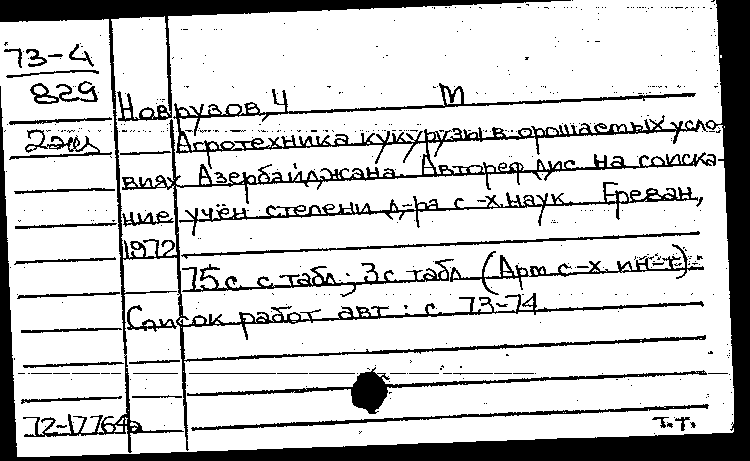 73-4
829
2экз
Новрузов, Ч М
Агротехника кукурузы в орошаемых усло-
виях Азербайджана. Автореф дис на соиска-
ние учён степени д-ра с-х. наук. Ереван,
1972
75с. с табл; 3с табл (Арм с-х. ин-т).
Список работ авт: с. 73-74.
72-17764а
т.т.